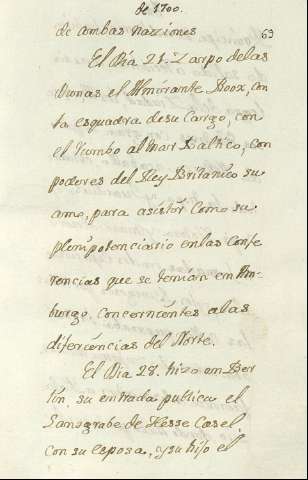 de 1700.
63
de ambas naziones
El Dia 21. Zarpo de las
Dunas el Almirante Roox, con
la esquadra de su Cargo, con
el Rumbo al Mar Baltico, con
poderes del Rey Britanico su
amo, para asistir Como su
plenipotenciario en las Confe
rencias que se tenian en Am
burgo. Concernientes a las
diferencias del Norte.
El Dia 28. hizo en Ber
lin. su entrada publica el
Lansgrabe de Hesse Casel.
con su esposa, y su hijo el